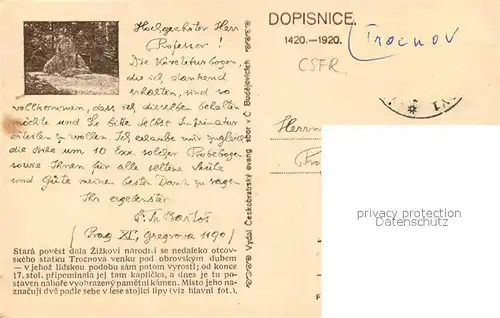 Hochgeehrter Herr
Professor !
Die Korrekturbogen,
die ich dankend
erhalten, sind so
vollkommen, dass ich dieselben behalten
möchte und Sie bitte selbst Imprimatur
erteilen zu wollen. Ich erlaube mir zugleich
die Bitte um 10 Exx. solcher Probebogen
sowie Ihnen für alle seltene Mühe
und Güte meinen besten Dank zu sagen
Ihr ergebenster
Bartoš
(Prag XI, Gregrova 1190)
Stará pověst dala Žižkovi naroditi se nedaleko otcov-
ského statku Trocnova venku pod obrovským dubem
— v jehož lidskou podobu sám potom vyrostl; od konce
17. stol. připomínala jej tam kaplička, a dnes je tu po-
staven nahoře vyobrazený pamětní kámen. Místo jeho na-
značují dvě podle sebe v lese stojící lípy (viz hlavní fot.).
Vydal Českobratrský evang. sbor v Č. Budějovicích
DOPISNICE.
1420.—1920.
Trocnov
CSFR
Herrn
protected by copyright
protected by copyright